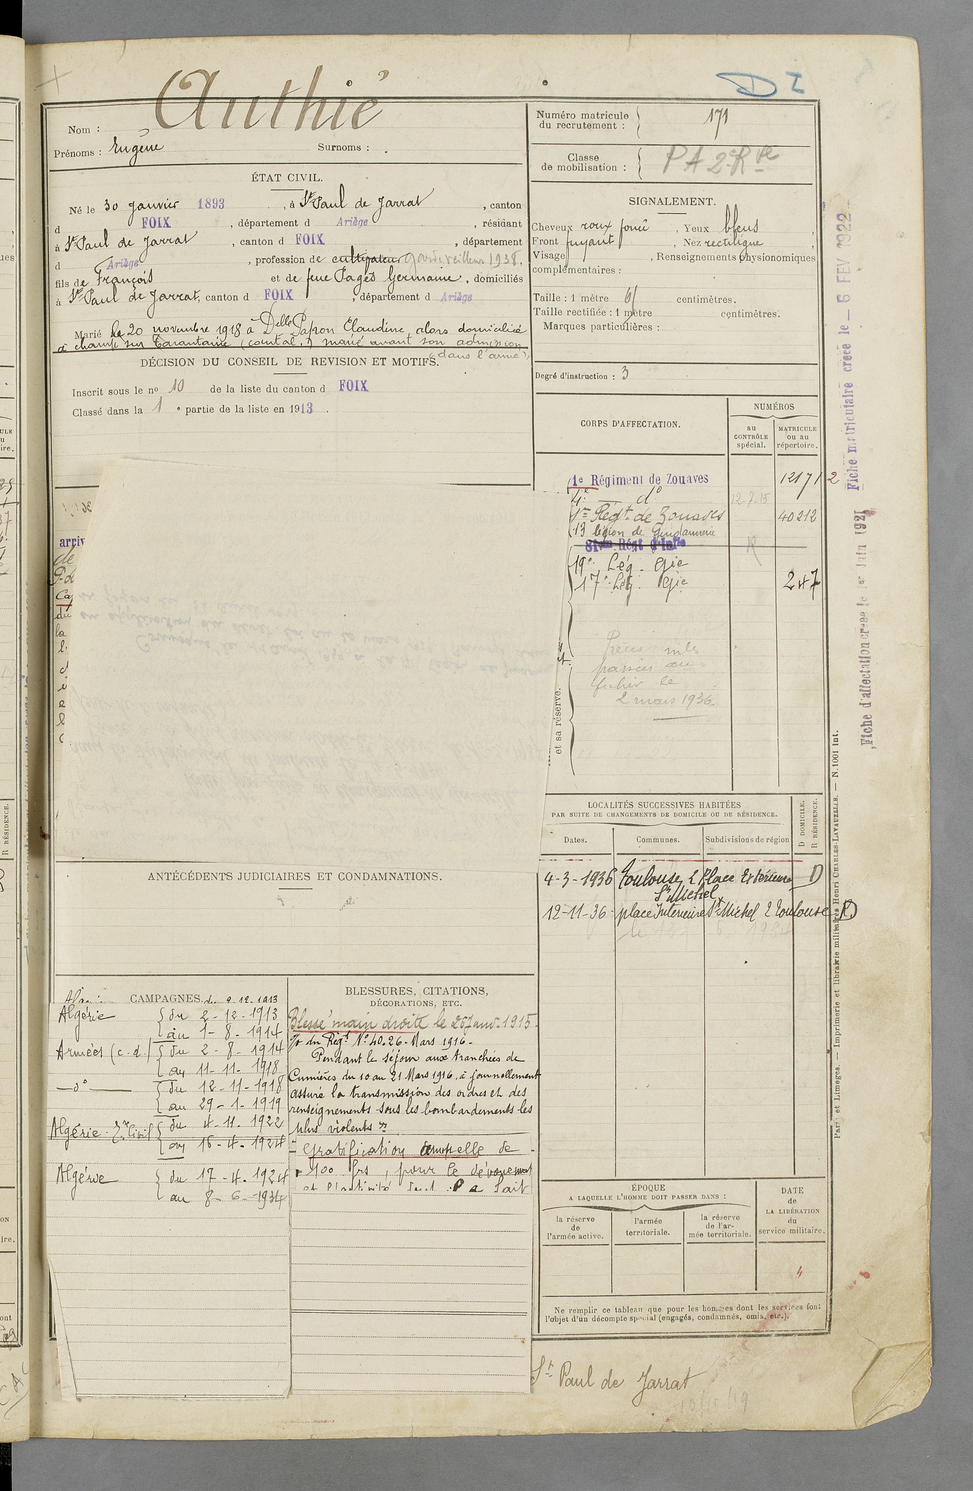 Authié
Nom :
Prénoms : Eugène Surnoms : .
ÉTAT CIVIL.
Né le 30 janvier 1893 , à St Paul de Jarrat , canton
d FOIX , département d Ariège , résidant
à St Paul de Jarrat , canton d FOIX , département
d Ariège , profession de cultivateur 1938.
fils de François et de feue Pagès Germaine , domiciliés
à St Paul de Jarrat, canton d FOIX , département d Ariège
Marié le 20 novembre 1918 à Delle Papon Claudine, alors domiciliée
à champs sur Tarentaine (cantal.) marié avant son admission
(dans l'armée)
DÉCISION DU CONSEIL DE REVISION ET MOTIFS.
Inscrit sous le no 10 de la liste du canton d FOIX
Classé dans la 1 e partie de la liste en 1913 .
arriv
ANTÉCÉDENTS JUDICIAIRES ET CONDAMNATIONS.
CAMPAGNES. 2.12.1913
Algérie { du 2-12-1913
au 1-8-1914
Armées (c.d.) { du 2-8-1914
au 11-11-1918
—do { du 12-11-1918
au 29-1-1919
Algérie { du 4-11-1922
au 16-4-1924
Algérie { du 17-4-1924
au 8-6-1934
BLESSURES, CITATIONS,
DÉCORATIONS, ETC.
Blessé main droite le 25 Janv. 1915.
O. du Régt No 40.26. Mars 1916.
Pendant le séjour aux tranchées de
Cumières du 10 au 21 Mars 1916. a journellement
assuré la transmission des ordres et des
renseignements sous les bombardements les
plus violents "
Gratification annuelle de
100 frs, pour le dévouement
et l'activité fait
Numéro matricule
du recrutement : } 171
Classe
de mobilisation : { PA 2e Rve
D I
SIGNALEMENT.
Cheveux roux foncé , Yeux bleus
Front fuyant , Nez rectiligne
Visage , Renseignements physionomiques
complémentaires :
Taille : 1 mètre 61 centimètres.
Taille rectifiée : 1 mètre centimètres.
Marques particulières :
Degré d'instruction : 3
CORPS D'AFFECTATION.
NUMÉROS
au
CONTRÔLE
spécial.
MATRICULE
ou au
répertoire.
1e Régiment de Zouaves 12171 2
4e — do 12.7.15
1er Régt de Zouaves 40212
13 légion de Gendarmerie
81ème Régt d'Infie
19e Lég. Gie
17e Lég. Gie 247
et sa réserve.
passées au
fichier le
2 mars 1936
LOCALITÉS SUCCESSIVES HABITÉES
PAR SUITE DE CHANGEMENTS DE DOMICILE OU DE RÉSIDENCE.
Dates.
Communes.
Subdivisions de région
D DOMICILE.
R RÉSIDENCE.
4-3-1936 Toulouse, 2 Place Extérieure D
St Michel
12-11-36 place Intérieure St Michel 2 Toulouse D
ÉPOQUE
A LAQUELLE L'HOMME DOIT PASSER DANS :
la réserve
de
l'armée active.
l'armée
territoriale.
la réserve
de l'ar-
mée territoriale.
DATE
de
LA LIBÉRATION
du
service militaire.
Ne remplir ce tableau que pour les hommes dont les services font
l'objet d'un décompte spécial (engagés, condamnés, omis, etc.).
St Paul de Jarrat
Fiche matriculaire créée le — 6 FEV 1922
Fiche d'affectation créée le 1er Juin 1921
Paris et Limoges. — Imprimerie et librairie militaires Henri CHARLES-LAVAUZELLE. — N. 1001 int.